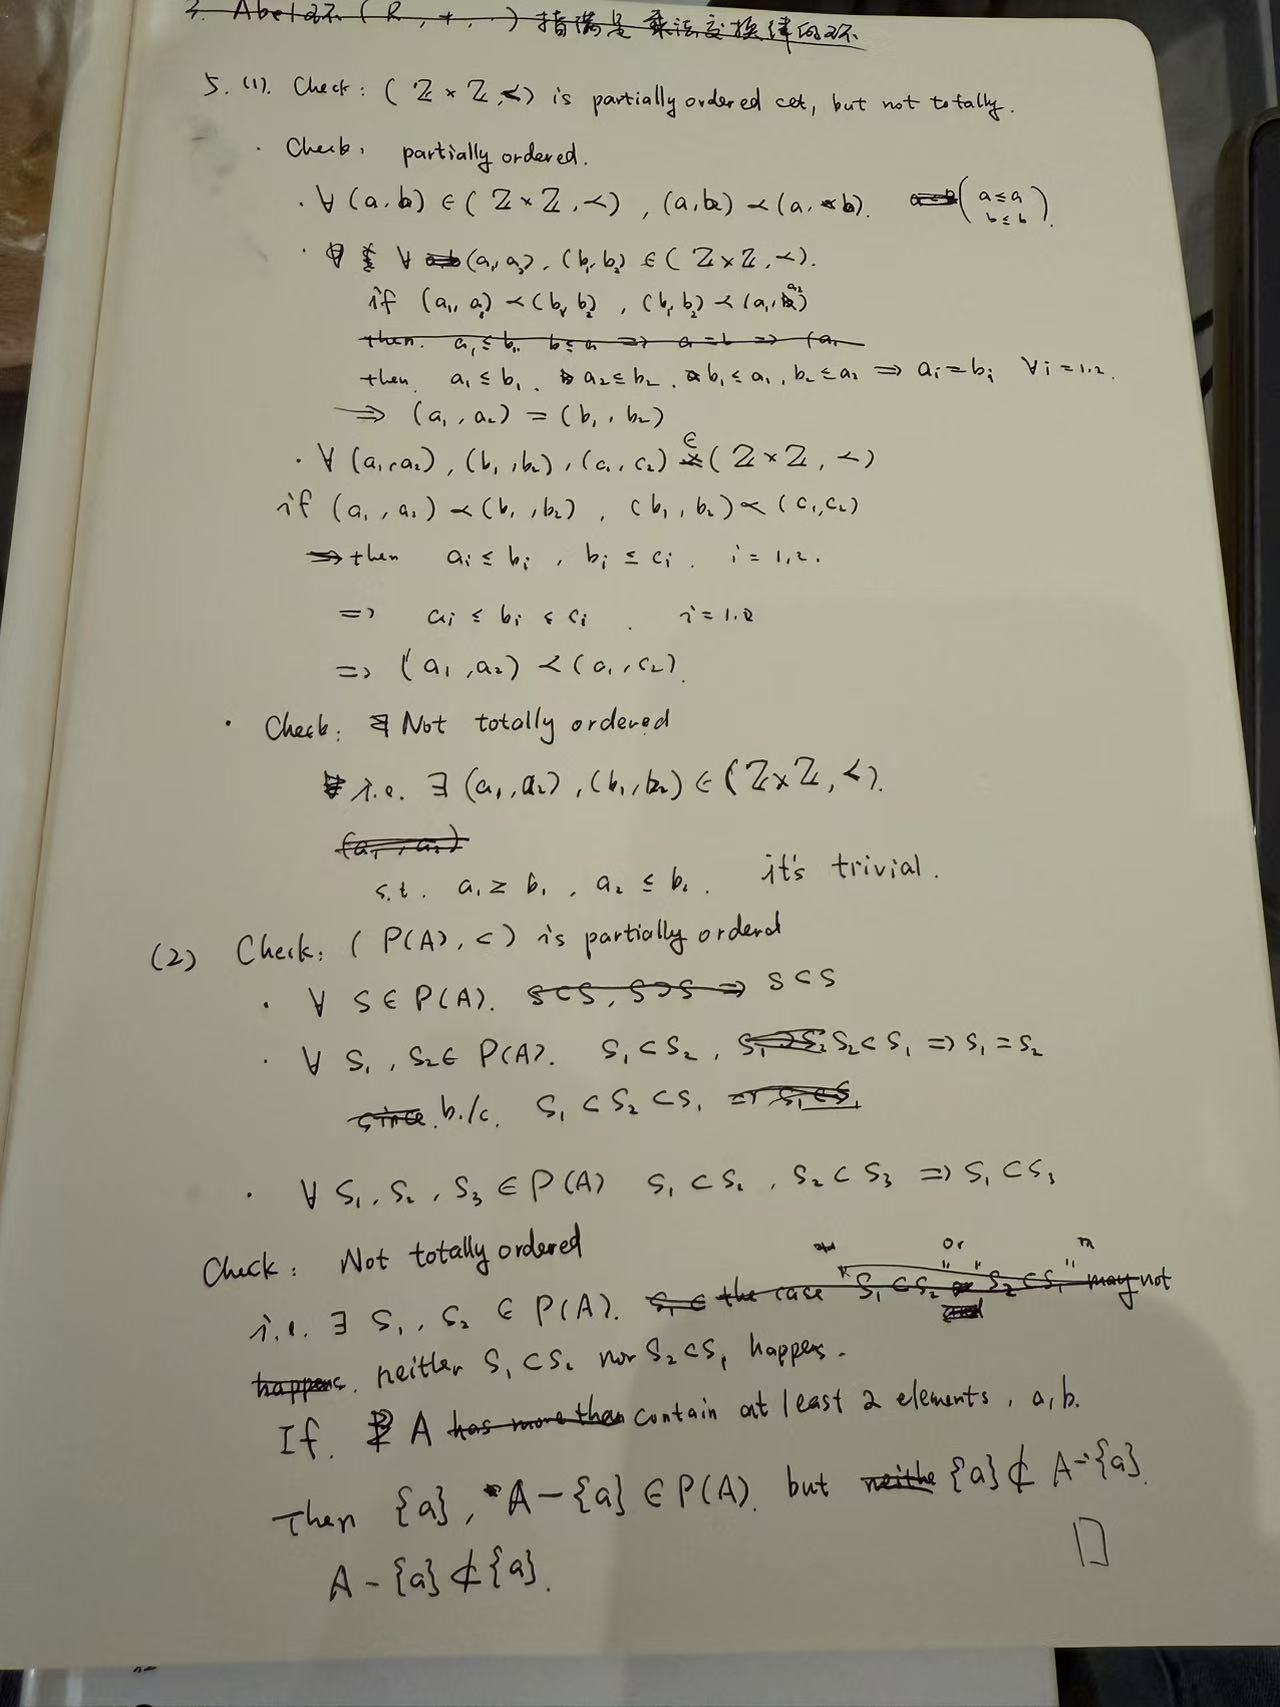 3. Abel环 (R, +, ·) 指满足 乘法交换律的环
5. (1). Check: (ℤ × ℤ, ≺) is partially ordered set, but not totally.
· Check: partially ordered.
· ∀ (a,b) ∈ (ℤ × ℤ, ≺), (a,b) ≺ (a, b). (a ≤ a
b ≤ b).
· ∀ (a₁, a₂), (b₁, b₂) ∈ (ℤ × ℤ, ≺).
if (a₁, a₂) ≺ (b₁, b₂), (b₁, b₂) ≺ (a₁, a₂)
then. a₁ ≤ b₁. b ≤ a ⇒ a = b ⇒ (a₁
then. a₁ ≤ b₁. a₂ ≤ b₂. b₁ ≤ a₁, b₂ ≤ a₂ ⇒ aᵢ = bᵢ ∀ i = 1,2.
⇒ (a₁, a₂) = (b₁, b₂)
· ∀ (a₁, a₂), (b₁, b₂), (c₁, c₂) ∈ (ℤ × ℤ, ≺)
if (a₁, a₂) ≺ (b₁, b₂), (b₁, b₂) ≺ (c₁, c₂)
then aᵢ ≤ bᵢ, bᵢ ≤ cᵢ. i = 1,2.
⇒ aᵢ ≤ bᵢ ≤ cᵢ. i = 1.2
⇒ (a₁, a₂) ≺ (c₁, c₂).
· Check: Not totally ordered
i.e. ∃ (a₁, a₂), (b₁, b₂) ∈ (ℤ × ℤ, ≺).
(a₁, a₂)
s.t. a₁ ≥ b₁, a₂ ≤ b₂. it's trivial.
(2) Check: (P(A), ⊂) is partially orderd
· ∀ S ∈ P(A). S ⊂ S, S ⊃ S ⇒ S ⊂ S
· ∀ S₁, S₂ ∈ P(A). S₁ ⊂ S₂, S₁ ⊃ S₂ S₂ ⊂ S₁ ⇒ S₁ = S₂
since. b./c. S₁ ⊂ S₂ ⊂ S₁ ⇒ S₁ ⊂ S₁
· ∀ S₁, S₂, S₃ ∈ P(A) S₁ ⊂ S₂, S₂ ⊂ S₃ ⇒ S₁ ⊂ S₃
Check: Not totally ordered
i.e. ∃ S₁, S₂ ∈ P(A). S₁ ⊂ the case "S₁ ⊂ S₂" or "S₂ ⊂ S₁" may not
happens. neither S₁ ⊂ S₂ nor S₂ ⊂ S₁ happes.
If. A has more than contain at least 2 elements, a, b.
Then {a}, A - {a} ∈ P(A). but neithe {a} ⊄ A - {a}.
A - {a} ⊄ {a}. □